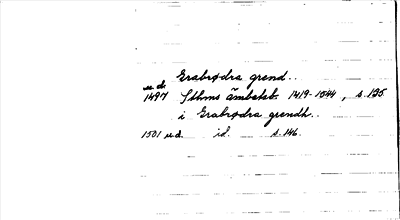 Grabrødra grend..
u.d.
1497 Sthms ämbetsb. 1419-1544, s. 125
i Grabrødra grendh..
1501 u.d. id. s. 146.